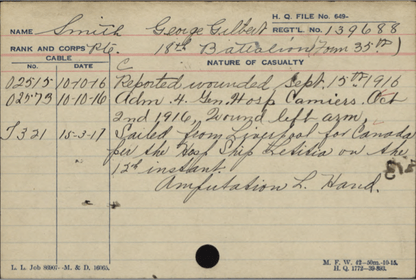 H. Q. FILE No. 649-
NAME Smith George Gilbert REGT'L. No. 139688
RANK AND CORPS Pte. 18th Battalion (from 35th)
CABLE
No. DATE NATURE OF CASUALTY
C
02515 10-10-16 Reported wounded Sept. 15th 1916
02573 10-10-16 Adm. 4. Gen. Hosp Camiers. Oct
2nd 1916, Wound left arm,
T321 15-3-17 Sailed from Liverpool for Canada
per the Hosp Ship Letitia on the
12th instant.
Amputation L. Hand.
L. L. Job 80901—M. & D. 16065.
M. F. W. 42—50m.-10-15.
H. Q. 1772-39-893.